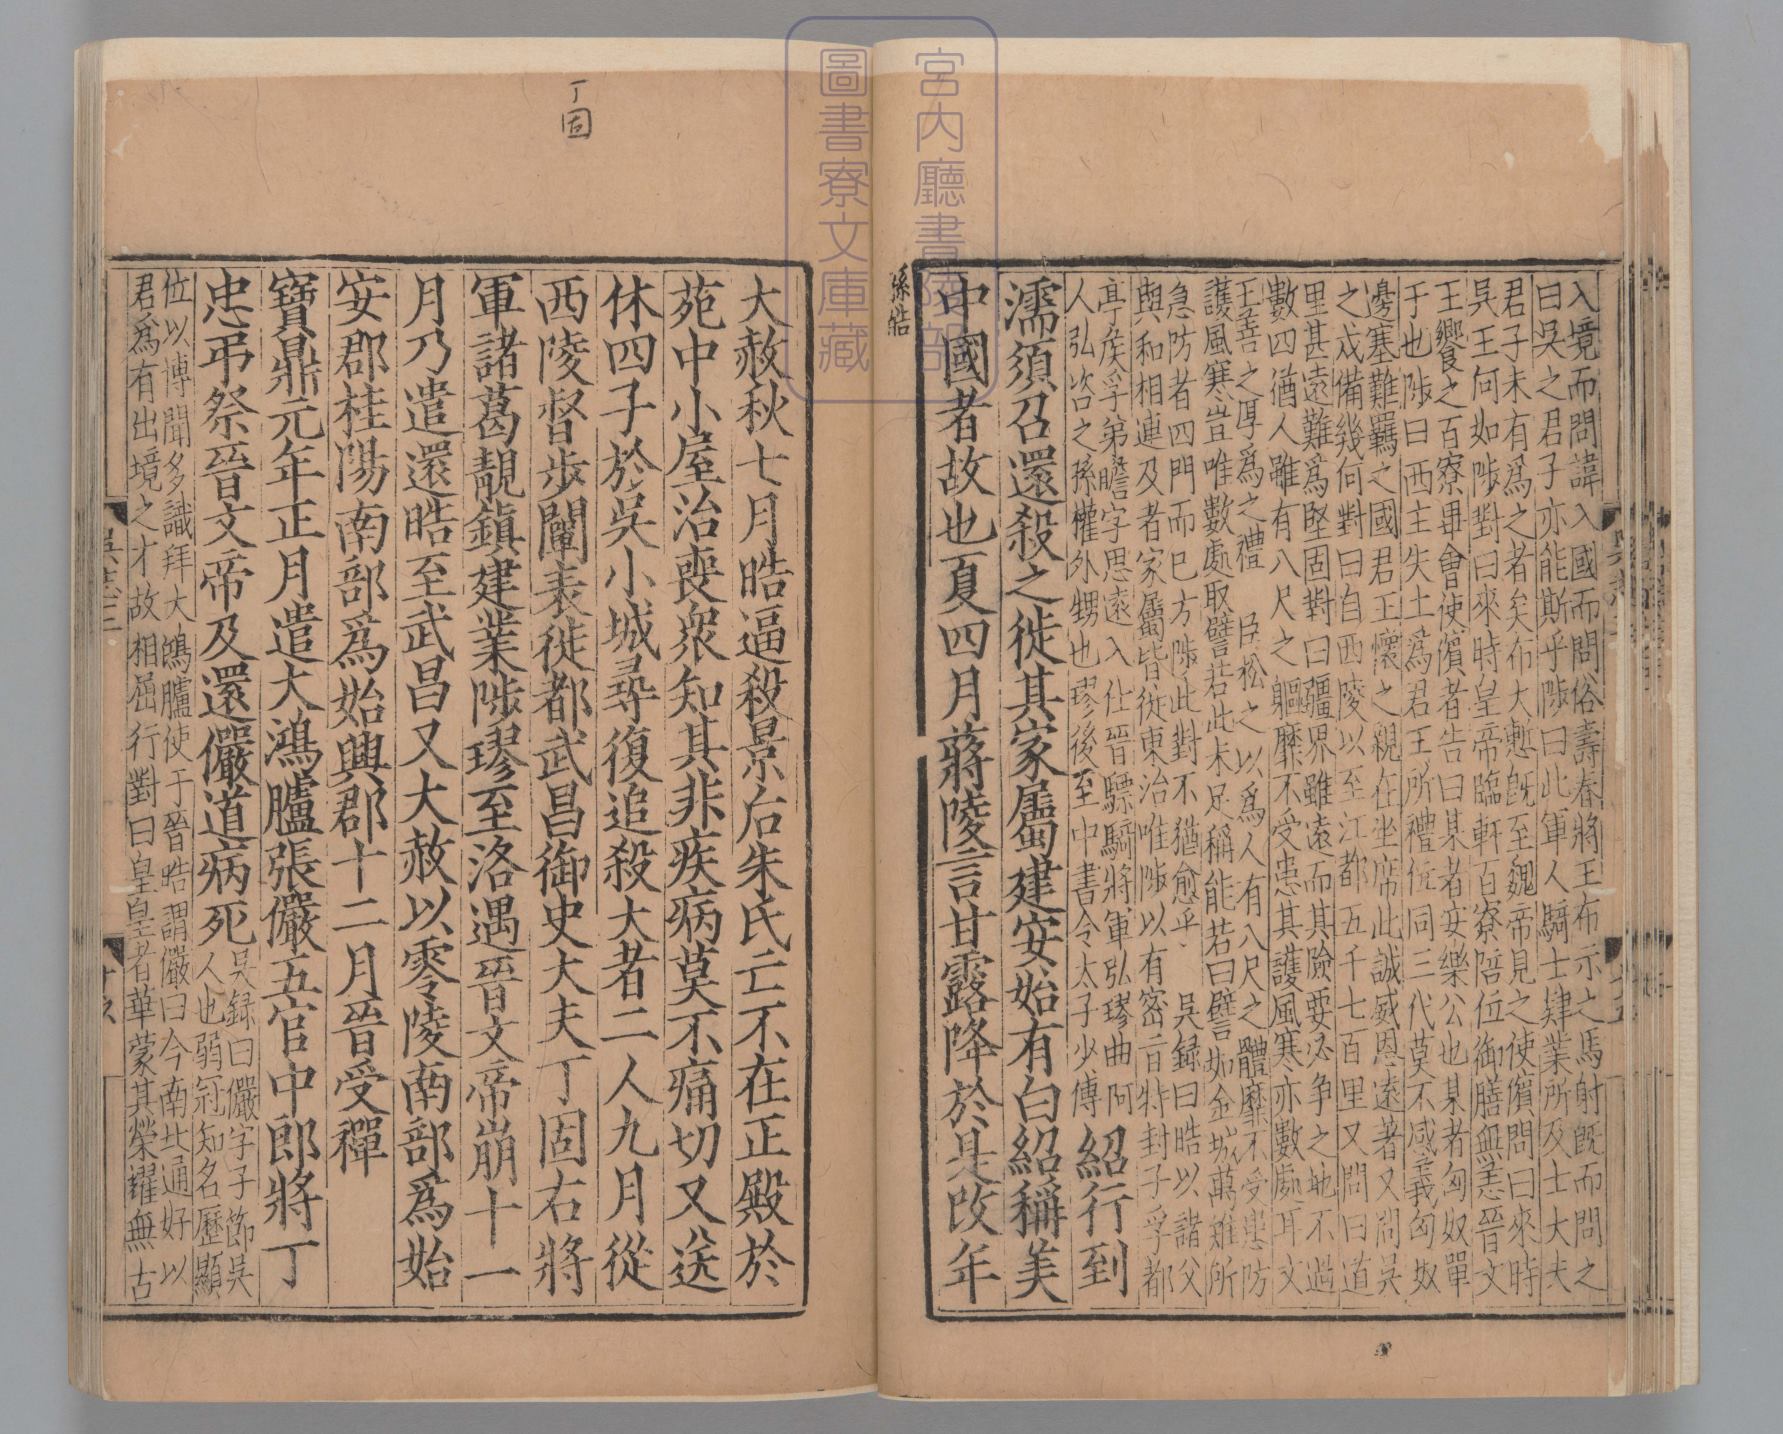 入境而問諱入國而問俗壽春將王布示之馬射既而問之
曰吳之君子亦能斯乎陟曰此軍人騎士肄業所及士大夫
君子未有爲之者矣布大慙既至魏帝見之使儐問曰來時
吳王何如陟對曰來時皇帝臨軒百寮陪位御膳無恙晉文
王饗之百寮畢會使儐者告曰某者安樂公也某者匈奴單
于也陟曰西主失土爲君王所禮位同三代莫不感義匈奴
邊塞難羈之國君王懷之親在坐席此誠威恩遠著又問吳
之戍備幾何對曰自西陵以至江都五千七百里又問曰道
里甚遠難爲堅固對曰疆界雖遠而其險要必争之地不過
數四猶人雖有八尺之軀靡不受患其護風寒亦數處耳文
王善之厚爲之禮 臣松之以爲人有八尺之體靡不受患防
護風寒豈唯數處取譬若此未足稱能若曰譬如金城萬雉所
急防者四門而已方陟此對不猶愈乎 吳録曰晧以諸父
與和相連及者家屬皆徙東治唯陟以有密旨特封子孚都
亭侯孚弟瞻字思遠入仕晉驃騎將軍弘璆曲阿
人弘咨之孫權外甥也璆後至中書令太子少傅
紹行到
濡須召還殺之徙其家屬建安始有白紹稱美
中國者故也夏四月蔣陵言甘露降於是改年
孫皓
大赦秋七月晧逼殺景后朱氏亡不在正殿於
苑中小屋治喪衆知其非疾病莫不痛切又送
休四子於吳小城尋復追殺大者二人九月從
西陵督步闡表徙都武昌御史大夫丁固右將
軍諸葛靚鎮建業陟璆至洛遇晉文帝崩十一
月乃遣還晧至武昌又大赦以零陵南部爲始
安郡桂陽南部爲始興郡十二月晉受禪
寶鼎元年正月遣大鴻臚張儼五官中郎將丁
忠弔祭晉文帝及還儼道病死
吳録曰儼字子節吳
人也弱冠知名歷顯
位以博聞多識拜大鴻臚使于晉晧謂儼曰今南北通好以
君爲有出境之才故相屈行對曰皇皇者華蒙其榮耀無古
丁固
吳志三
宮内廳書陵部
圖書寮文庫藏